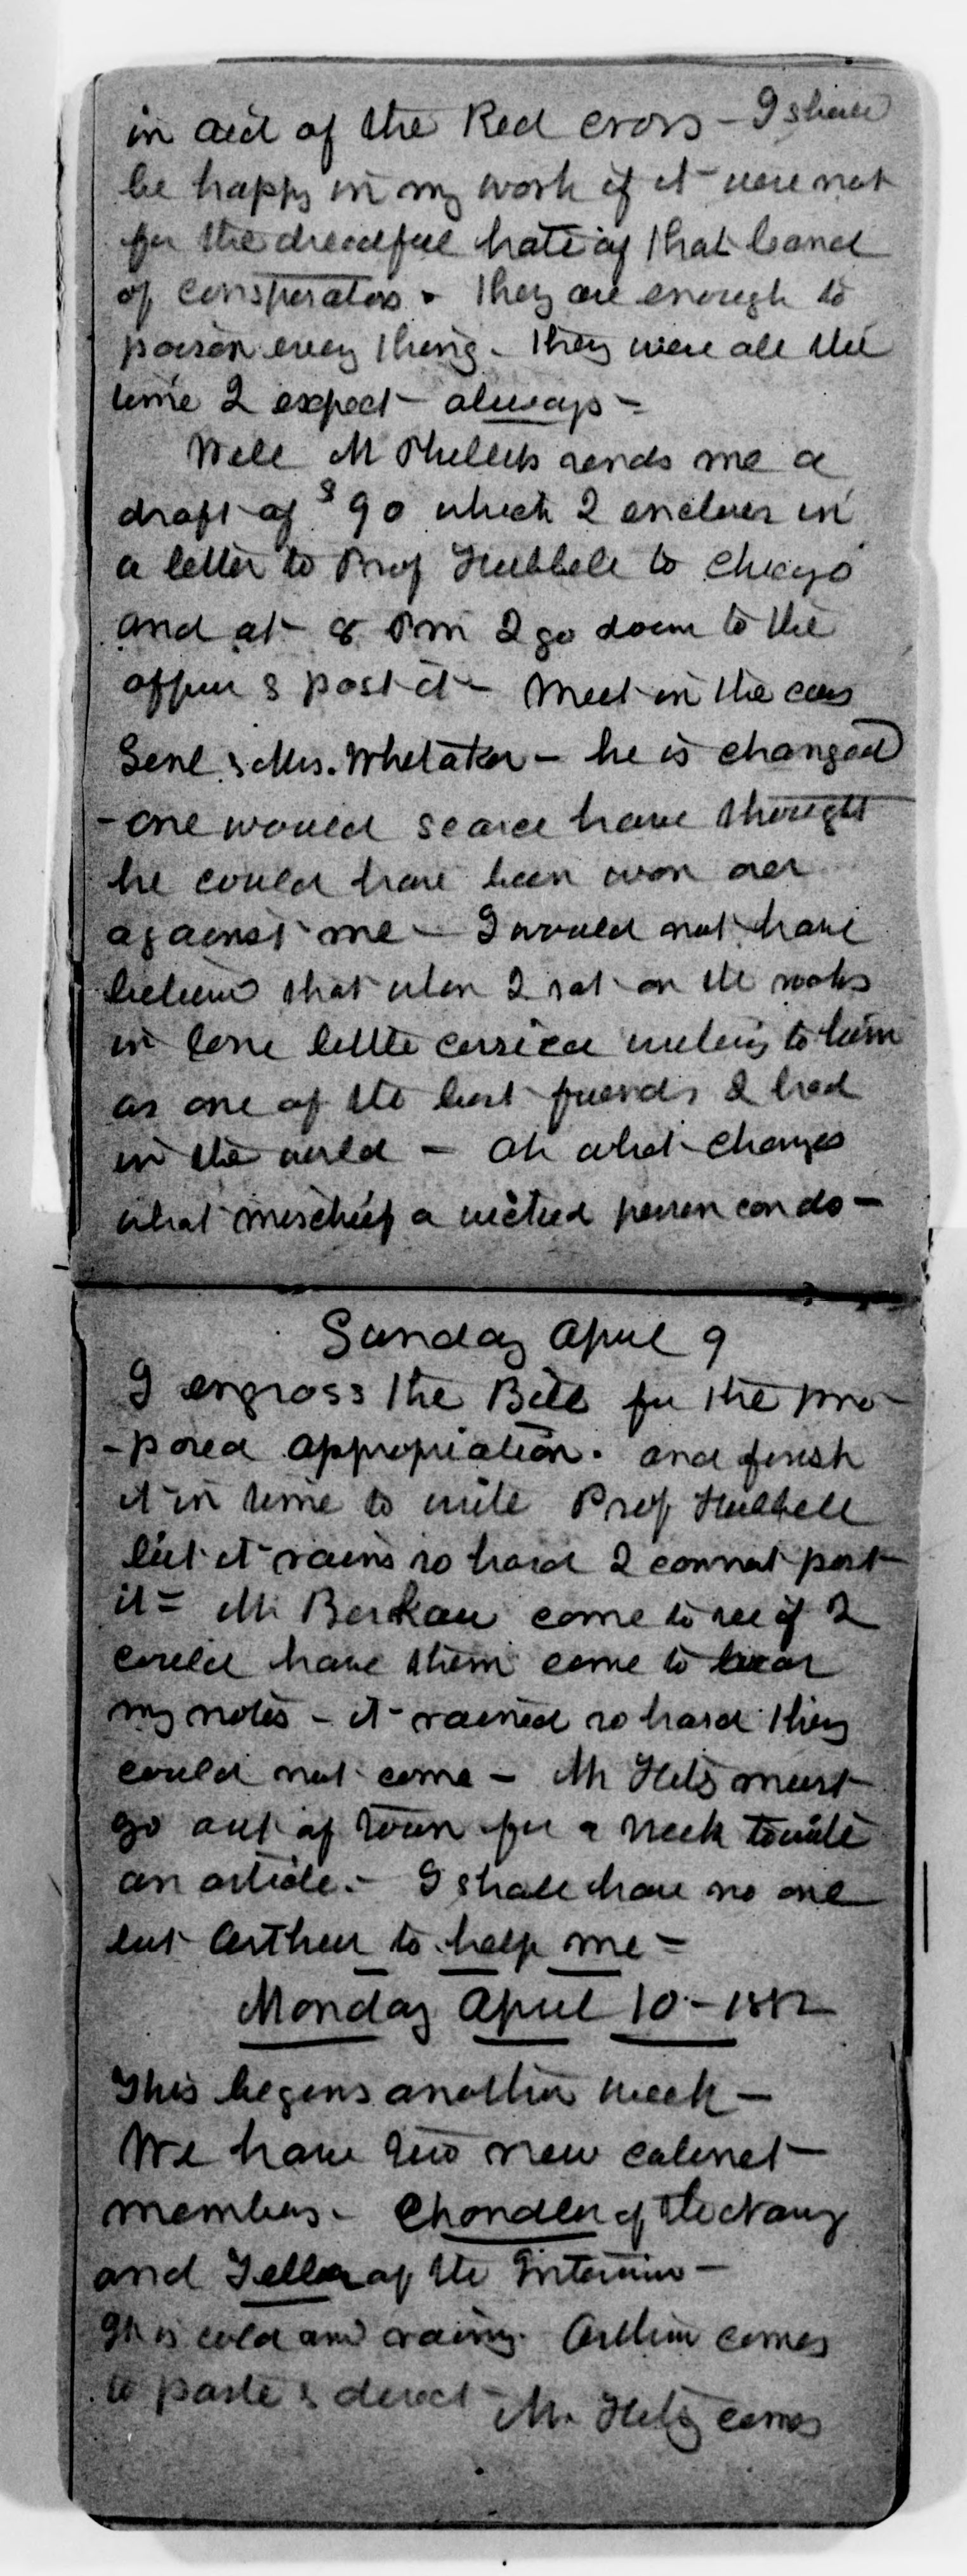 in aid of the Red cross - I shall
be happy in my work if it were not
for the dreadful hate of that band
of conspirators - They are enough to
poison every thing - They were all the
time I expect - always =
Well Mr Phillips sends me a
draft of $90 which I enclose in
a letter to Prof Hubbell to Chicago
and at 8 PM I go down to the
office & post it - Meet in the cars
Genl & Mrs. Whitaker - he is changed
- one would scarce have thought
he could have been won over
against me - I would not have
believed that when I sat on the rocks
in lone little corsica writing to him
as one of the best friends I had
in the world - Oh what changes
what mischief a wicked person can do -
Sunday April 9
I engross the Bill for the pro-
-posed appropriation. and finish
it in time to write Prof Hubbell
but it rains so hard I cannot post
it = Mr. come to see if I
could have them come to hear
my notes - it rained so hard they
could not come - Mr Hitz must
go out of town for a week to write
an article. - I shall have no one
but Arthur to help me =
Monday April 10 - 1882
This begins another week -
We have two new cabinet
members - Chandler of the Navy
and Teller of the Interior -
It is cold and rainy. Arthur comes
to paste & direct - Mr. Hitz comes